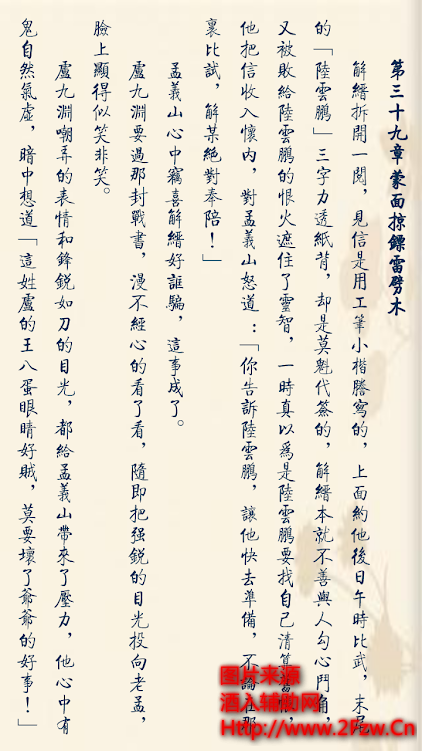 第三十九章 蒙面掠鏢雷劈木
解縉拆開一閱，見信是用工筆小楷謄寫的，上面約他後日午時比武，末尾
的「陸雲鵬」三字力透紙背，却是莫魁代簽的，解縉本就不善與人勾心鬥角，
又被敗給陸雲鵬的恨火遮住了靈智，一時真以爲是陸雲鵬要找自己清算
他把信收入懷内，對孟義山怒道：「你告訴陸雲鵬，讓他快去準備，不論在那
裏比試，解某絕對奉陪！」
孟義山心中竊喜解縉好誑騙，這事成了。
盧九淵要過那封戰書，漫不經心的看了看，隨即把强銳的目光投向老孟，
臉上顯得似笑非笑。
盧九淵嘲弄的表情和鋒銳如刀的目光，都給孟義山帶來了壓力，他心中有
鬼自然氣虛，暗中想道「這姓盧的王八蛋眼睛好賊，莫要壞了爺爺的好事！」
图片来源
酒入辅助网
Http://www.2Rzw.Cn